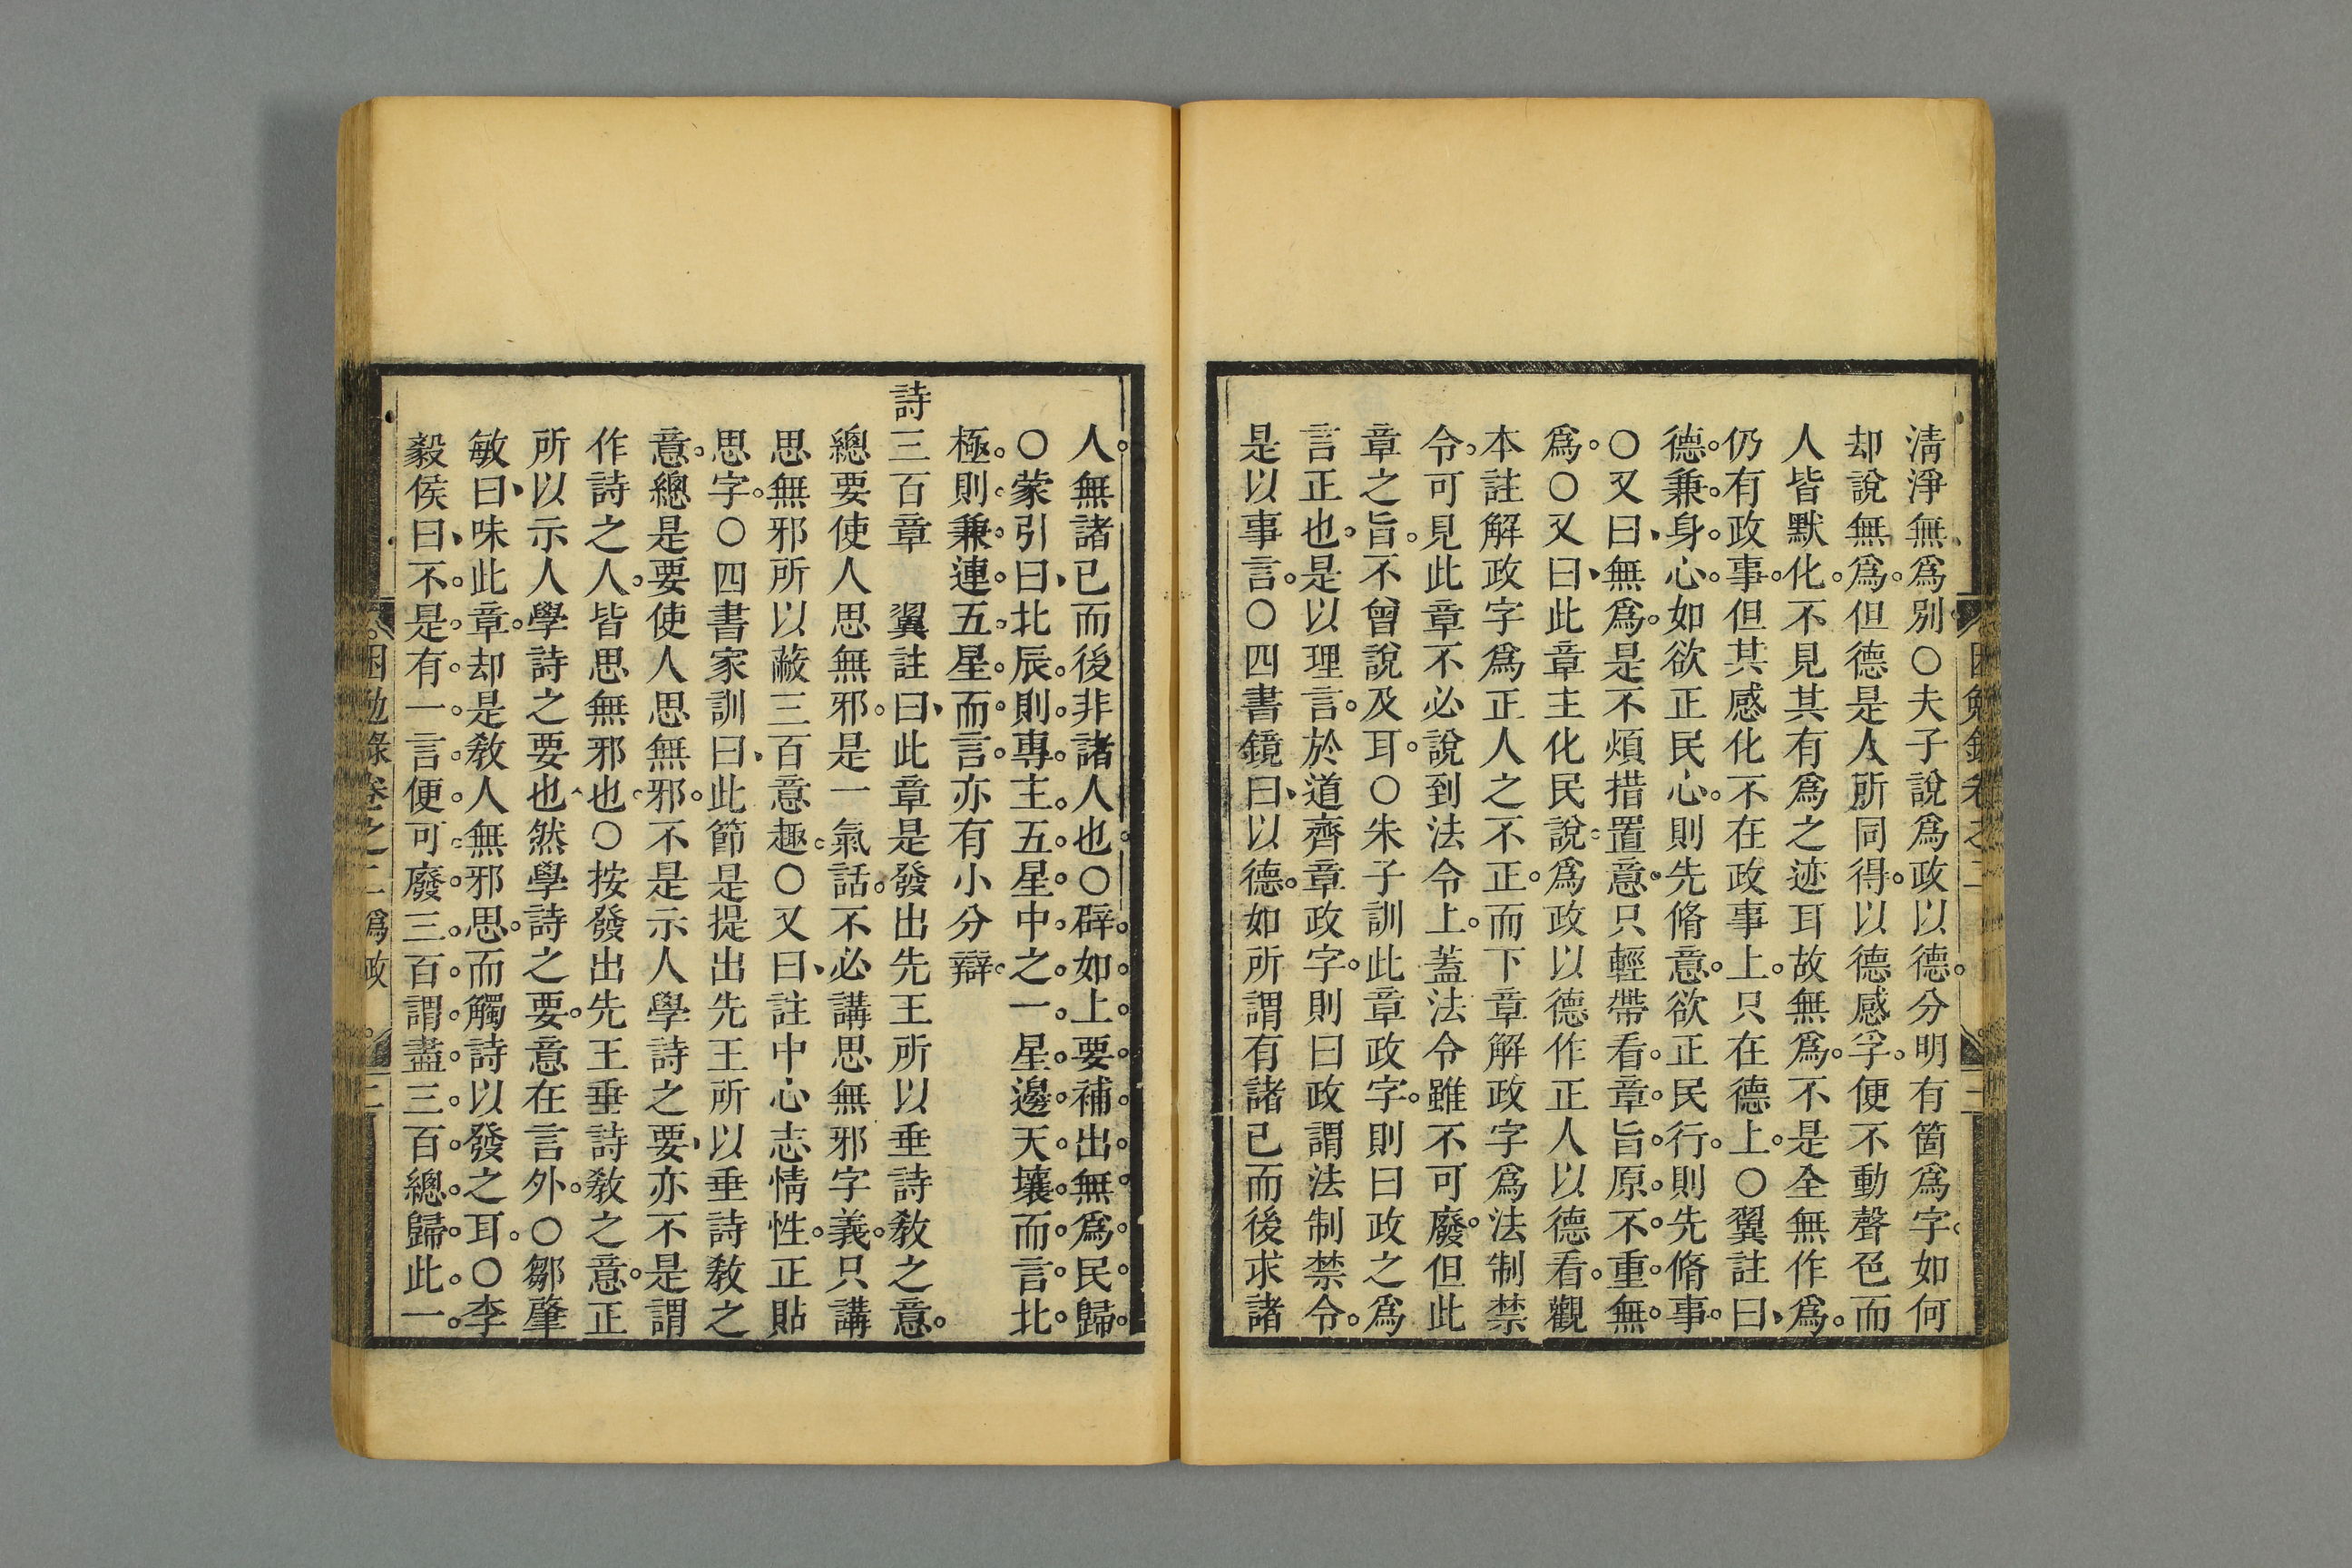 淸淨無爲別○夫子說爲政以德分明有箇爲字如何
却說無爲但德是人所同得以德感孚便不動聲色而
人皆默化不見其有爲之迹耳故無爲不是全無作爲
仍有政事但其感化不在政事上只在德上○翼註曰
德兼身心如欲正民心則先脩意欲正民行則先脩事
○又曰無爲是不煩措置意只輕帶看章旨原不重無
爲○又曰此章主化民說爲政以德作正人以德看觀
本註解政字爲正人之不正而下章解政字爲法制禁
令可見此章不必說到法令上蓋法令雖不可廢但此
章之旨不曾說及耳○朱子訓此章政字則曰政之爲
言正也是以理言於道齊章政字則曰政謂法制禁令
是以事言○四書鏡曰以德如所謂有諸已而後求諸
人無諸已而後非諸人也○辟如上要補出無爲民歸
○蒙引曰北辰則專主五星中之一星邊天壤而言北
極則兼連五星而言亦有小分辯
詩三百章 翼註曰此章是發出先王所以垂詩敎之意
總要使人思無邪是一氣話不必講思無邪字義只講
思無邪所以蔽三百意趣○又曰註中心志情性正貼
思字○四書家訓曰此節是提出先王所以垂詩敎之
意總是要使人思無邪不是示人學詩之要亦不是謂
作詩之人皆思無邪也○按發出先王垂詩敎之意正
所以示人學詩之要也然學詩之要意在言外○鄒肇
敏曰味此章却是敎人無邪思而觸詩以發之耳○李
毅侯曰不是有一言便可廢三百謂盡三百總歸此一
困勉錄卷之二 爲政 二